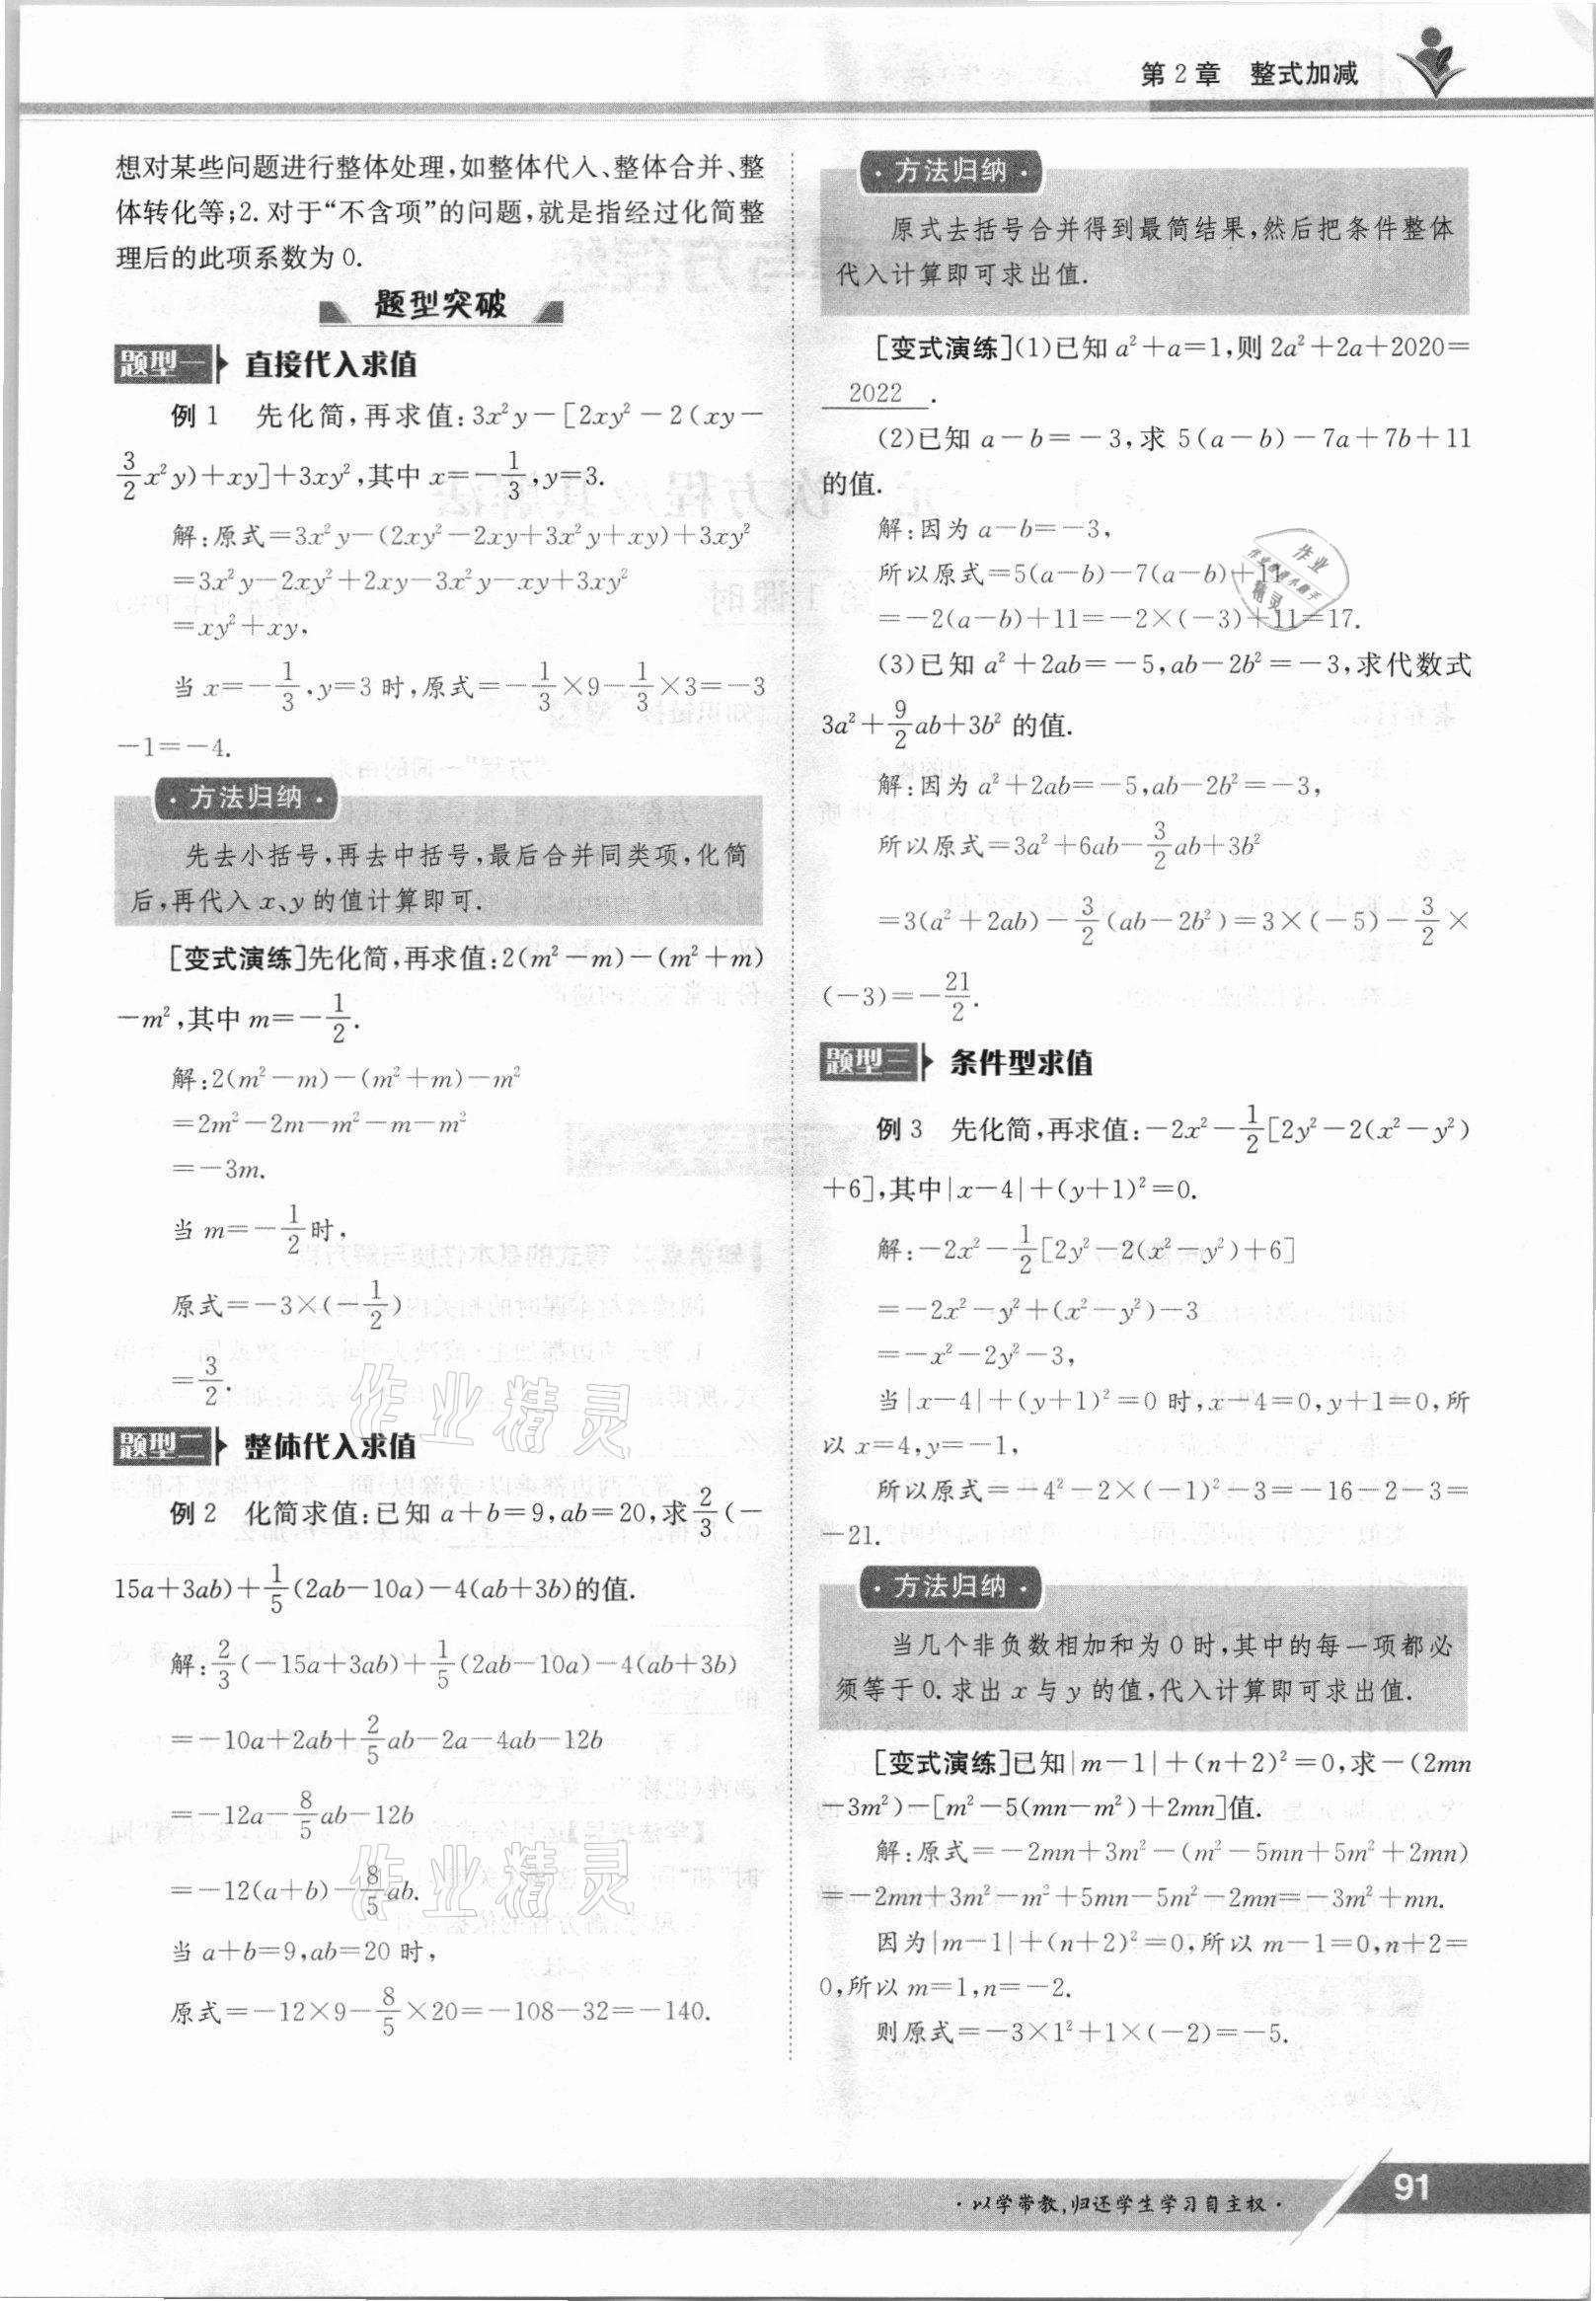 第2章 整式加减
想对某些问题进行整体处理,如整体代入、整体合并、整
体转化等;2.对于“不含项”的问题,就是指经过化简整
理后的此项系数为0.
题型突破
题型一 直接代入求值
例1 先化简,再求值:3x²y－[2xy²－2(xy－
3/2x²y)+xy]+3xy²,其中x=－1/3,y=3.
解:原式=3x²y－(2xy²－2xy+3x²y+xy)+3xy²
=3x²y－2xy²+2xy－3x²y－xy+3xy²
=xy²+xy,
当x=－1/3,y=3时,原式=－1/3×9－1/3×3=－3
－1=－4.
·方法归纳·
先去小括号,再去中括号,最后合并同类项,化简
后,再代入x、y的值计算即可.
[变式演练]先化简,再求值:2(m²－m)－(m²+m)
－m²,其中m=－1/2.
解:2(m²－m)－(m²+m)－m²
=2m²－2m－m²－m－m²
=－3m.
当m=－1/2时,
原式=－3×(－1/2)
=3/2.
题型二 整体代入求值
例2 化简求值:已知a+b=9,ab=20,求2/3(－
15a+3ab)+1/5(2ab－10a)－4(ab+3b)的值.
解:2/3(－15a+3ab)+1/5(2ab－10a)－4(ab+3b)
=－10a+2ab+2/5ab－2a－4ab－12b
=－12a－8/5ab－12b
=－12(a+b)－8/5ab.
当a+b=9,ab=20时,
原式=－12×9－8/5×20=－108－32=－140.
·方法归纳·
原式去括号合并得到最简结果,然后把条件整体
代入计算即可求出值.
[变式演练](1)已知a²+a=1,则2a²+2a+2020=
2022.
(2)已知a－b=－3,求5(a－b)－7a+7b+11
的值.
解:因为a－b=－3,
所以原式=5(a－b)－7(a－b)+11
=－2(a－b)+11=－2×(－3)+11=17.
(3)已知a²+2ab=－5,ab－2b²=－3,求代数式
3a²+9/2ab+3b²的值.
解:因为a²+2ab=－5,ab－2b²=－3,
所以原式=3a²+6ab－3/2ab+3b²
=3(a²+2ab)－3/2(ab－2b²)=3×(－5)－3/2×
(－3)=－21/2.
题型三 条件型求值
例3 先化简,再求值:－2x²－1/2[2y²－2(x²－y²)
+6],其中|x－4|+(y+1)²=0.
解:－2x²－1/2[2y²－2(x²－y²)+6]
=－2x²－y²+(x²－y²)－3
=－x²－2y²－3,
当|x－4|+(y+1)²=0时,x－4=0,y+1=0,所
以x=4,y=－1,
所以原式=－4²－2×(－1)²－3=－16－2－3=
－21.
·方法归纳·
当几个非负数相加和为0时,其中的每一项都必
须等于0.求出x与y的值,代入计算即可求出值.
[变式演练]已知|m－1|+(n+2)²=0,求－(2mn
－3m²)－[m²－5(mn－m²)+2mn]值.
解:原式=－2mn+3m²－(m²－5mn+5m²+2mn)
=－2mn+3m²－m²+5mn－5m²－2mn=－3m²+mn.
因为|m－1|+(n+2)²=0,所以m－1=0,n+2=
0,所以m=1,n=－2.
则原式=－3×1²+1×(－2)=－5.
作业精灵
作业精灵
作业
精灵
·以学带教,归还学生学习自主权·
91